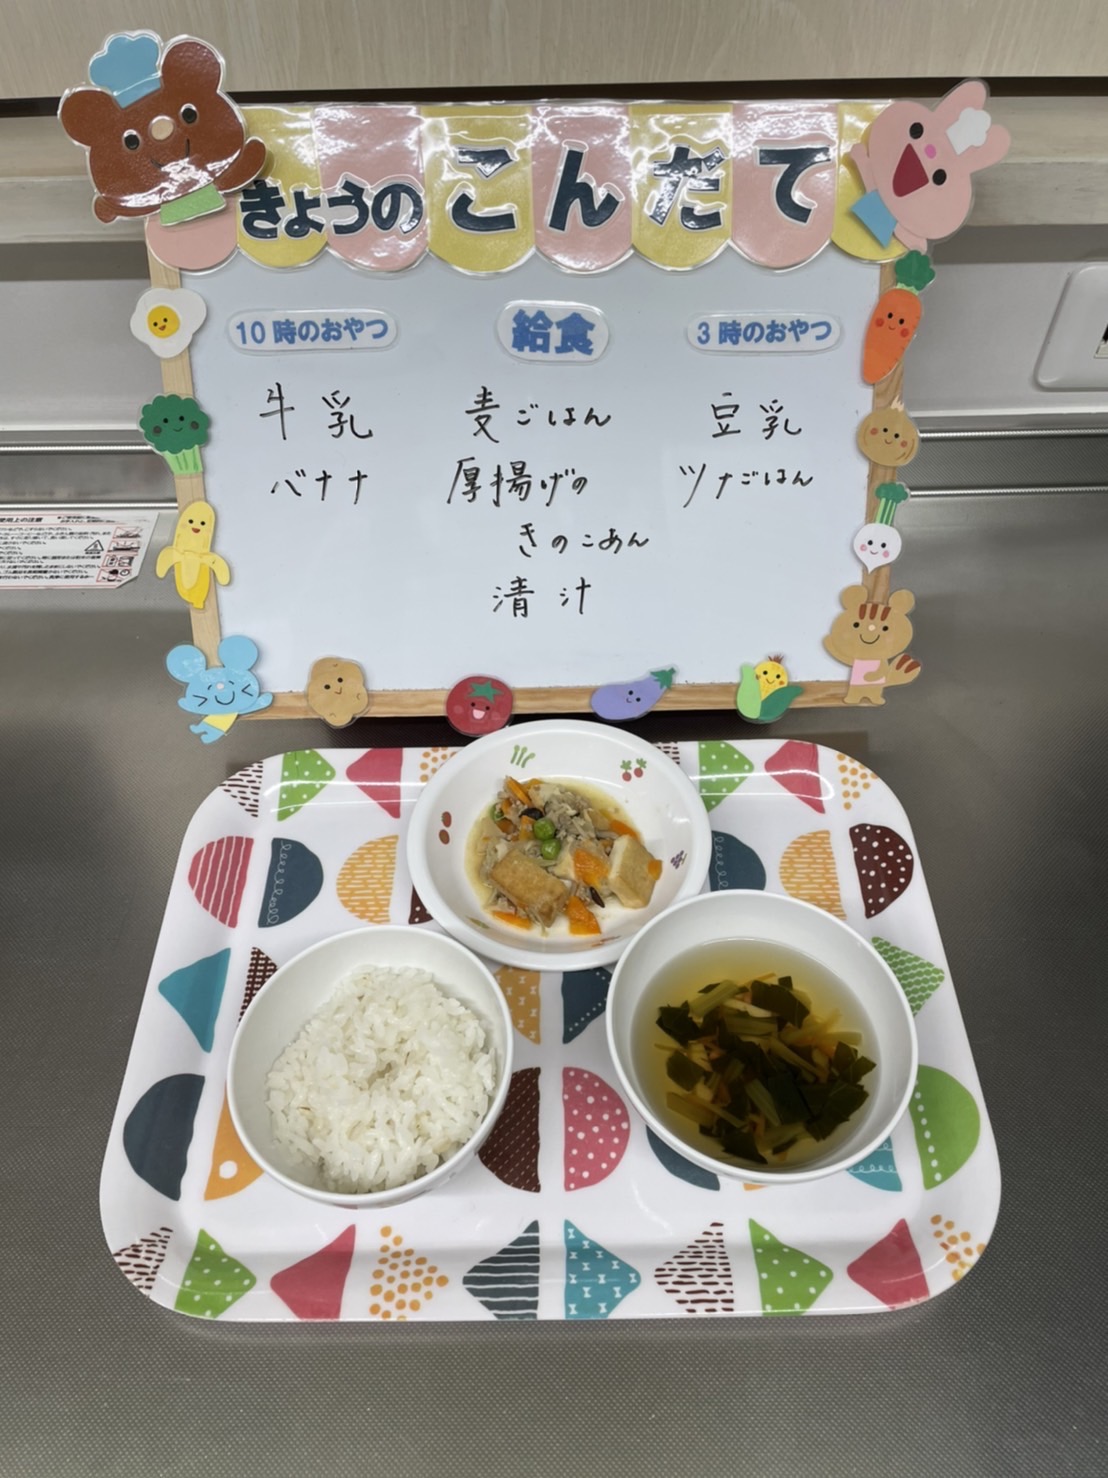 きょうの こんだて
10時のおやつ
牛乳
バナナ
給食
麦ごはん
厚揚げの
きのこあん
清汁
3時のおやつ
豆乳
ツナごはん